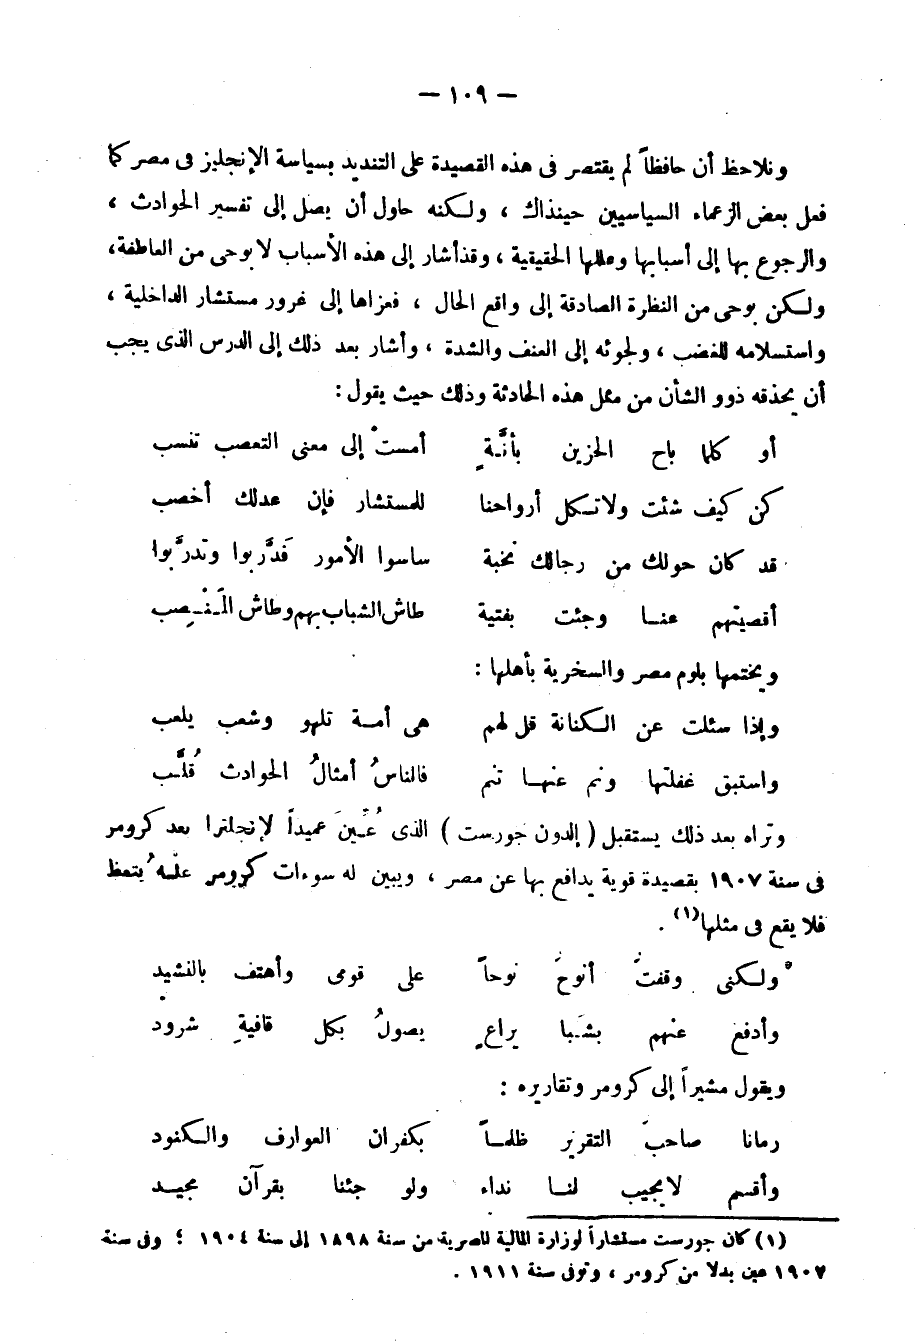 — ١٠٩ —
ونلاحظ أن حافظاً لم يقتصر فى هذه القصيدة على التنديد بسياسة الإنجليز فى مصر كما
فعل بعض الزعماء السياسيين حينذاك ، ولكنه حاول أن يصل إلى تفسير الحوادث ،
والرجوع بها إلى أسبابها وعللها الحقيقية ، وقد أشار إلى هذه الأسباب لا بوحى من العاطفة،
ولكن بوحى من النظرة الصادقة إلى واقع الحال ، فعزاها إلى غرور مستشار الداخلية ،
واستسلامه للغضب ، ولجوئه إلى العنف والشدة ، وأشار بعد ذلك إلى الدرس الذى يجب
أن يحذقه ذوو الشأن من مثل هذه الحادثة وذلك حيث يقول :
أو كلما باح الحزين بأنَّةٍ أمستْ إلى معنى التعصب تنسب
كن كيف شئت ولا تكل أرواحنا للمستشار فإن عدلك أخصب
قد كان حولك من رجالك نخبة ساسوا الأمور فَدَرَّبوا وتدرَّبوا
أقصيتهم عنا وجئت بفتية طاش الشباب بهم وطاش المَنْصِب
ويختمها بلوم مصر والسخرية بأهلها :
وإذا سئلت عن الكنانة قل لهم هى أمة تلهو وشعب يلعب
واستبق غفلتها ونم عنها تنم فالناسُ أمثالُ الحوادث قُلَّب
وتراه بعد ذلك يستقبل ( إلدون جورست ) الذى عُيِّنَ عميداً لإنجلترا بعد كرومر
فى سنة ١٩٠٧ بقصيدة قوية يدافع بها عن مصر ، ويبين له سوءات كرومر علَّه يتعظ
فلا يقع فى مثلها(١) .
ولكنى وقفتُ أنوحُ نوحاً على قومى وأهتف بالنشيد
وأدفع عنهم بشَبا يراعٍ يصولُ بكل قافيةٍ شرود
ويقول مشيراً إلى كرومر وتقاريره :
رمانا صاحبُ التقرير ظلماً بكفران العوارف والكنود
وأقسم لا يجيب لنا نداء ولو جئنا بقرآن مجيد
(١) كان جورست مستشاراً لوزارة المالية المصرية من سنة ١٨٩٨ إلى سنة ١٩٠٤ ؛ وفى سنة
١٩٠٧ عين بدلا من كرومر ، وتوفى سنة ١٩١١ .